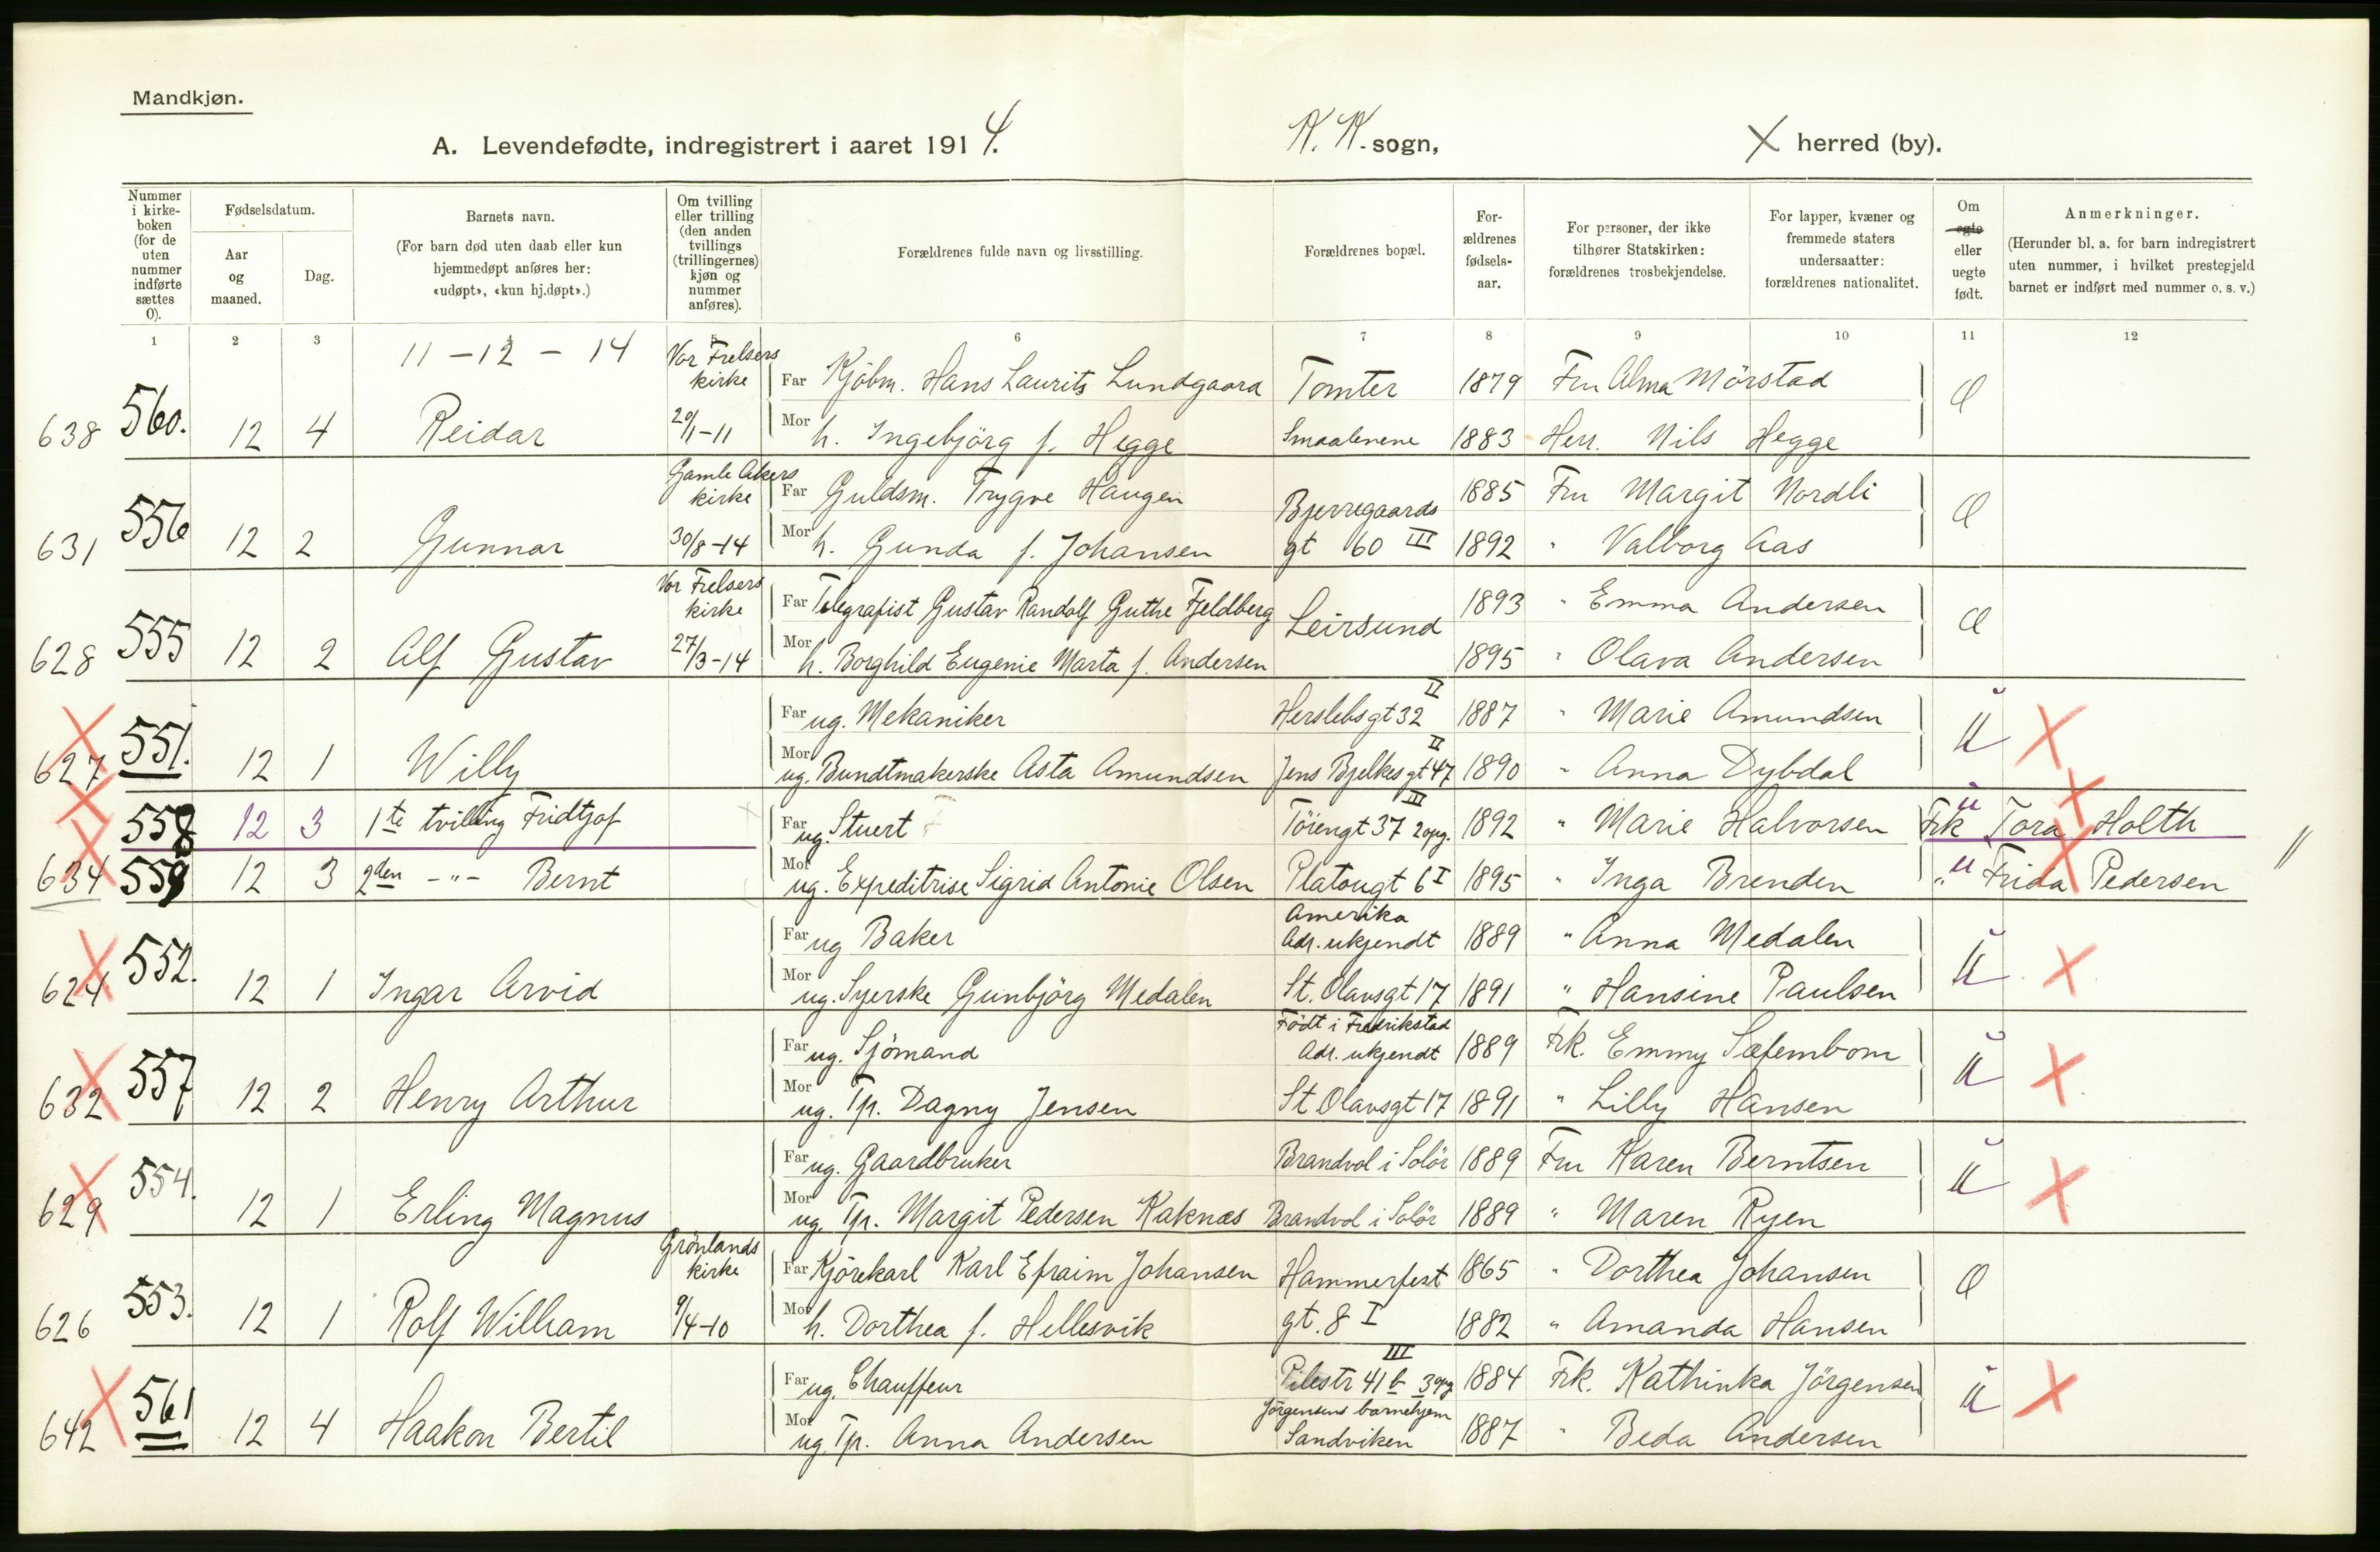 Mandkjøn.
A. Levendefødte, indregistrert i aaret 1914. K. K. sogn, X herred (by).
Nummer i kirke-boken (for de uten nummer indførte sættes 0).
Fødselsdatum.
Aar og maaned.
Dag.
Barnets navn.
(For barn død uten daab eller kun hjemmedøpt anføres her: «udøpt», «kun hj.døpt».)
Om tvilling eller trilling (den anden tvillings (trillingernes) kjøn og nummer anføres).
Forældrenes fulde navn og livsstilling.
Forældrenes bopæl.
For-ældrenes fødsels-aar.
For personer, der ikke tilhører Statskirken: forældrenes trosbekjendelse.
For lapper, kvæner og fremmede staters undersaatter: forældrenes nationalitet.
Om egte eller uegte født.
Anmerkninger.
(Herunder bl. a. for barn indregistrert uten nummer, i hvilket prestegjeld barnet er indført med nummer o. s. v.)
1 2 3 6 7 8 9 10 11 12
11 - 12 - 14 Vor Frelsers kirke
Far Kjöbm. Hans Laurits Lundgaard Tomter 1879 Fru Alma Mörstad
638 560. 12 4 Reidar 20/1-11 Mor h. Ingebjörg f. Hegge Smaalenene 1883 Herr. Nils Hegge
Gamle Akers kirke Far Guldsm. Trygve Haugen Bjerregaards 1885 Fru Margit Nordli
631 556 12 2 Gunnar 30/8-14 Mor h. Gunda f. Johansen gt 60 III 1892 " Valborg Aas
Vor Frelsers kirke Far Telegrafist Gustav Randolf Guthe Fjeldberg Leirsund 1893 " Emma Andersen
628 555 12 2 Alf Gustav 27/3-14 Mor h. Borghild Eugenie Marta f. Andersen 1895 " Olava Andersen
Far ug. Mekaniker Herslebsgt 32 II 1887 " Marie Amundsen U
627 551. 12 1 Willy Mor ug. Bundtmakerske Asta Amundsen Jens Bjelkesgt 47 II 1890 " Anna Dybdal
558 12 3 1te tvilling Fridtjof Far ug. Stuert Töiengt 37 2opg. III 1892 " Marie Halvorsen u Frk Tora Holth
634 559 12 3 2den -"- Bernt Mor ug. Expeditrise Sigrid Antonie Olsen Platougt 6 I 1895 " Inga Brenden " u Frida Pedersen
Far ug Baker Amerika Adr. ukjendt 1889 " Anna Medalen U
624 552. 12 1 Ingar Arvid Mor ug. Syerske Gunbjörg Medalen St. Olavsgt 17 1891 " Hansine Paulsen
Far ug. Sjömand Födt i Fredrikstad Adr. ukjendt 1889 Frk. Emmy U
632 557 12 2 Henry Arthur Mor ug. Tp. Dagny Jensen St Olavsgt 17 1891 " Lilly Hansen
Far ug. Gaardbruker Brandvol i Solör 1889 Fru Karen Berntsen U
629 554. 12 1 Erling Magnus Mor ug. Tp. Margit Pedersen Kaknæs Brandvol i Solör 1889 " Maren Ryen
Grönlands kirke Far Kjörekarl Karl Efraim Johansen Hammerfest 1865 " Dorthea Johansen
626 553. 12 1 Rolf William 9/4-10 Mor h. Dorthea f. Hellesvik gt. 8 I 1882 " Amanda Hansen
Far ug. Chauffeur Pilestr 41 b 3opg III 1884 Frk. Kathinka Jörgensen U
642 561 12 4 Haakon Bertil Mor ug. Tp. Anna Andersen Jörgensens barnehjem Sandviken 1887 " Beda Andersen